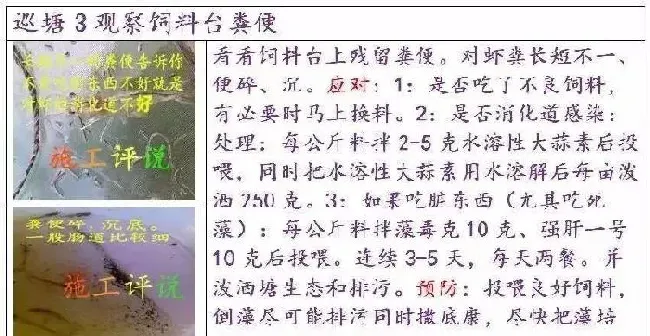 巡塘3观察饲料台粪便
长短不一的粪便告诉你
不是吃的东西不好就是
对虾的消化道不好
施工评说
粪便碎，沉底。
一般肠道比较细
施工评说
看看饲料台上残留粪便。对虾粪长短不一、
便碎、沉。应对：1：是否吃了不良饲料，
有必要时马上换料。2：是否消化道感染：
处理：每公斤料拌2-5克水溶性大蒜素后投
喂，同时把水溶性大蒜素用水溶解后每亩泼
洒250克。3：如果吃脏东西（尤其吃死
藻）：每公斤料拌藻毒克10克、强肝一号
10克后投喂。连续3-5天，每天两餐。并
泼洒塘生态和排污。预防：投喂良好饲料，
倒藻尽可能排污同时撒底康，尽快把藻培